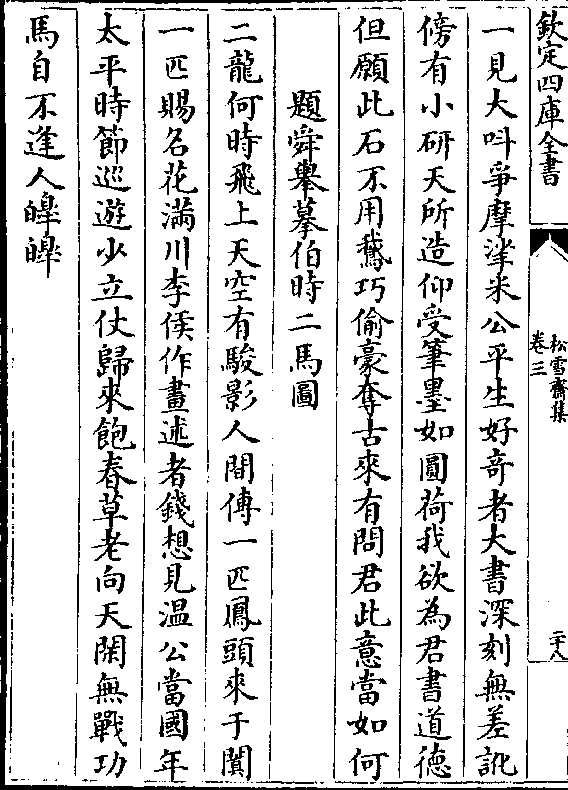 欽定四庫全書
松雪齋集
卷三
二十八
一見大呌爭摩挲米公平生好竒者大書深刻無差訛
傍有小研天所造仰受筆墨如圓荷我欲為君書道德
但願此石不用鵝巧偷豪奪古來有問君此意當如何
題舜舉摹伯時二馬圖
二龍何時飛上天空有駿影人間傳一匹鳳頭來于闐
一匹賜名花滿川李侯作畫述者錢想見温公當國年
太平時節巡遊少立仗歸來飽春草老向天閑無戰功
馬自不逢人皥皥